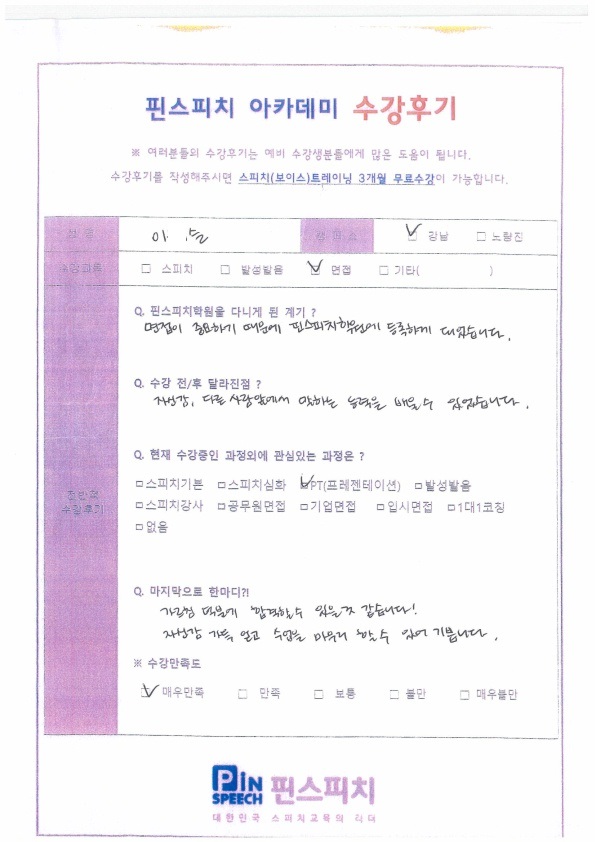 핀스피치 아카데미 수강후기
※ 여러분들의 수강후기는 예비 수강생분들에게 많은 도움이 됩니다.
수강후기를 작성해주시면 스피치(보이스)트레이닝 3개월 무료수강이 가능합니다.
성 명 이 슬 캠퍼스 ☑ 강남 □ 노량진
수강과목 □ 스피치 □ 발성발음 ☑ 면접 □ 기타( )
Q. 핀스피치학원을 다니게 된 계기 ?
면접이 중요하기 때문에 핀스피치학원에 등록하게 되었습니다.
Q. 수강 전/후 달라진점 ?
자신감, 다른 사람앞에서 말하는 능력을 배울수 있었습니다.
Q. 현재 수강중인 과정외에 관심있는 과정은 ?
□스피치기본 □스피치심화 ☑PT(프레젠테이션) □발성발음
전반적
수강후기
□스피치강사 □공무원면접 □기업면접 □입시면접 □1대1코칭
□없음
Q. 마지막으로 한마디?!
덕분에 합격할수 있을것 같습니다!
자신감 가득 얻고 수업을 마무리 할 수 있어 기쁩니다.
※ 수강만족도
☑ 매우만족 □ 만족 □ 보통 □ 불만 □ 매우불만
PIN
SPEECH 핀스피치
대한민국 스피치교육의 리더